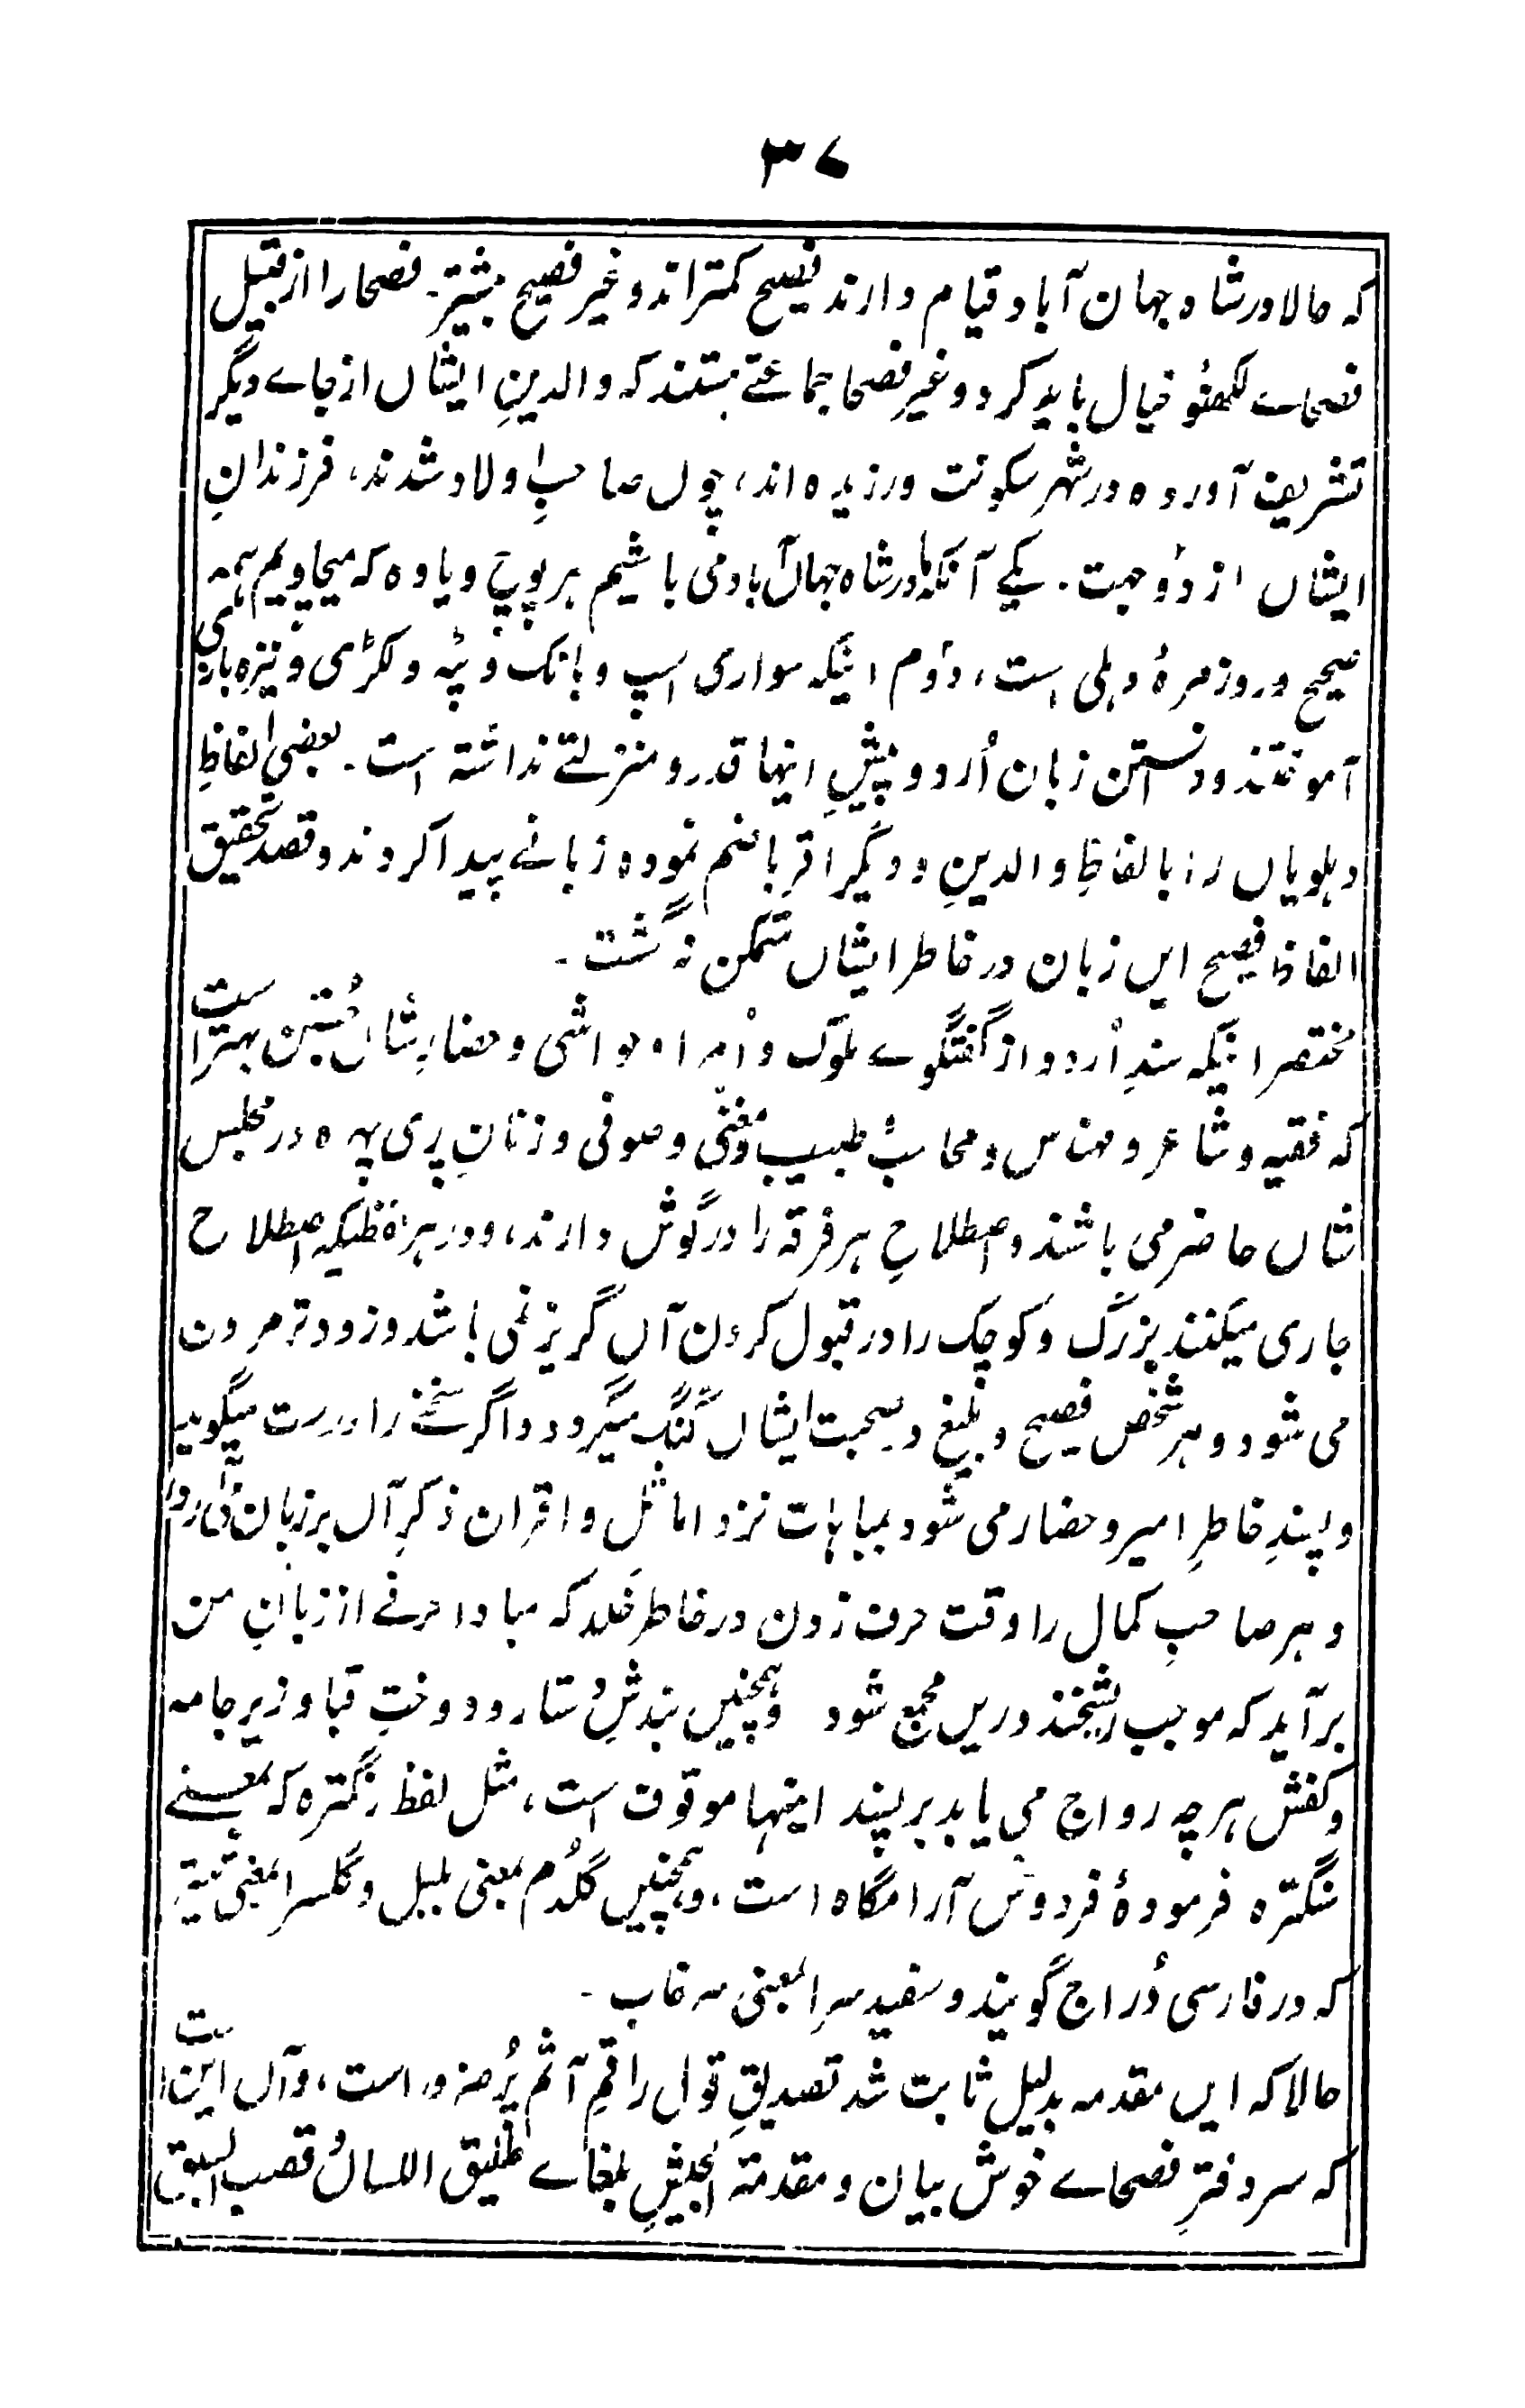 ۳۷
که حالا در شاه جهان آباد قیام دارند فصیح کمتر اند و غیر فصیح بیشتر۔ فصحا را از قبیل
فصحاے لکھنؤ خیال باید کرد و غیر فصحا جماعتے ہستند که والدینِ ایشاں از جاے دیگر
تشریف آورده در شہر سکونت ورزیده اند، چوں صاحبِ اولاد شدند، فرزندانِ
ایشاں از دو جہت۔ یکے آنکه ما در شاه جہاں آباد می باشیم ہر پوچ و یاوه که میجاویم ہمہ
صحیح و روزمرۂ دہلی است، دوم اینکه سواری اسپ و بانک و پٹه و لکڑی و نیزه بازی
آموختند و دانستن زبان اُردو پیشِ اینہا قدر و منزلتے نداشته است۔ بعضی الفاظِ
دہلویاں را با الفاظِ والدینِ و دیگر اقربا ضم نموده زبانے پیدا کردند و قصدِ تحقیق
الفاظ فصیح ایں زبان در خاطر ایشاں متمکن نہ گشت۔
مختصر اینکه سندِ اُردو از گفتگوے ملوک و اُمرا و حواشی و حضارِ شاں جُستن بہتر است
که فقیه و شاعر و مہندس و محاسب و طبیب و مغنّی و صوفی و زنانِ پری چہره در مجلس
شاں حاضر می باشند و اصطلاحِ ہر فرقه را در گوش دارند، و در ہر لفظیکه اصطلاح
جاری میکنند بزرگ و کوچک را در قبول کردن آں گریز نمی باشد و زود تر مروت
می شود و ہر شخص فصیح و بلیغ در صحبت ایشاں گنگ میگردد و اگر سخنے را درست میگوید
و پسندِ خاطرِ امیر و حضار می شود بمباہات نزد اماثل و اقران ذکرِ آں بر زبان می راند
و ہر صاحبِ کمال را وقت حرف زدن در خاطر خَلد که مبادا حرفے از زبانِ من
بر آید که موجب ریشخند دریں مجمع شود و ہمچنیں بندشِ دستار و دوختِ قبا و زیر جامه
و کفش ہر چه رواج می یابد بر پسند اینہا موقوف است، مثل لفظ رنگتره که بمعنے
سنگتره فرمودۂ فردوس آرامگاه است، و ہمچنیں گلدُم بمعنی بلبل و گلسرا بمعنی
که در فارسی دُراج گویند و سفید سرا بمعنی سرخاب۔
حالا که ایں مقدمه بدلیل ثابت شد تصدیقِ قول راقمِ آثم پُر ضرور است، و آں این است
که سر دفترِ فصحاے خوش بیان و مقدمة الجیشِ بلغاے طلیق اللسان قصب السبق